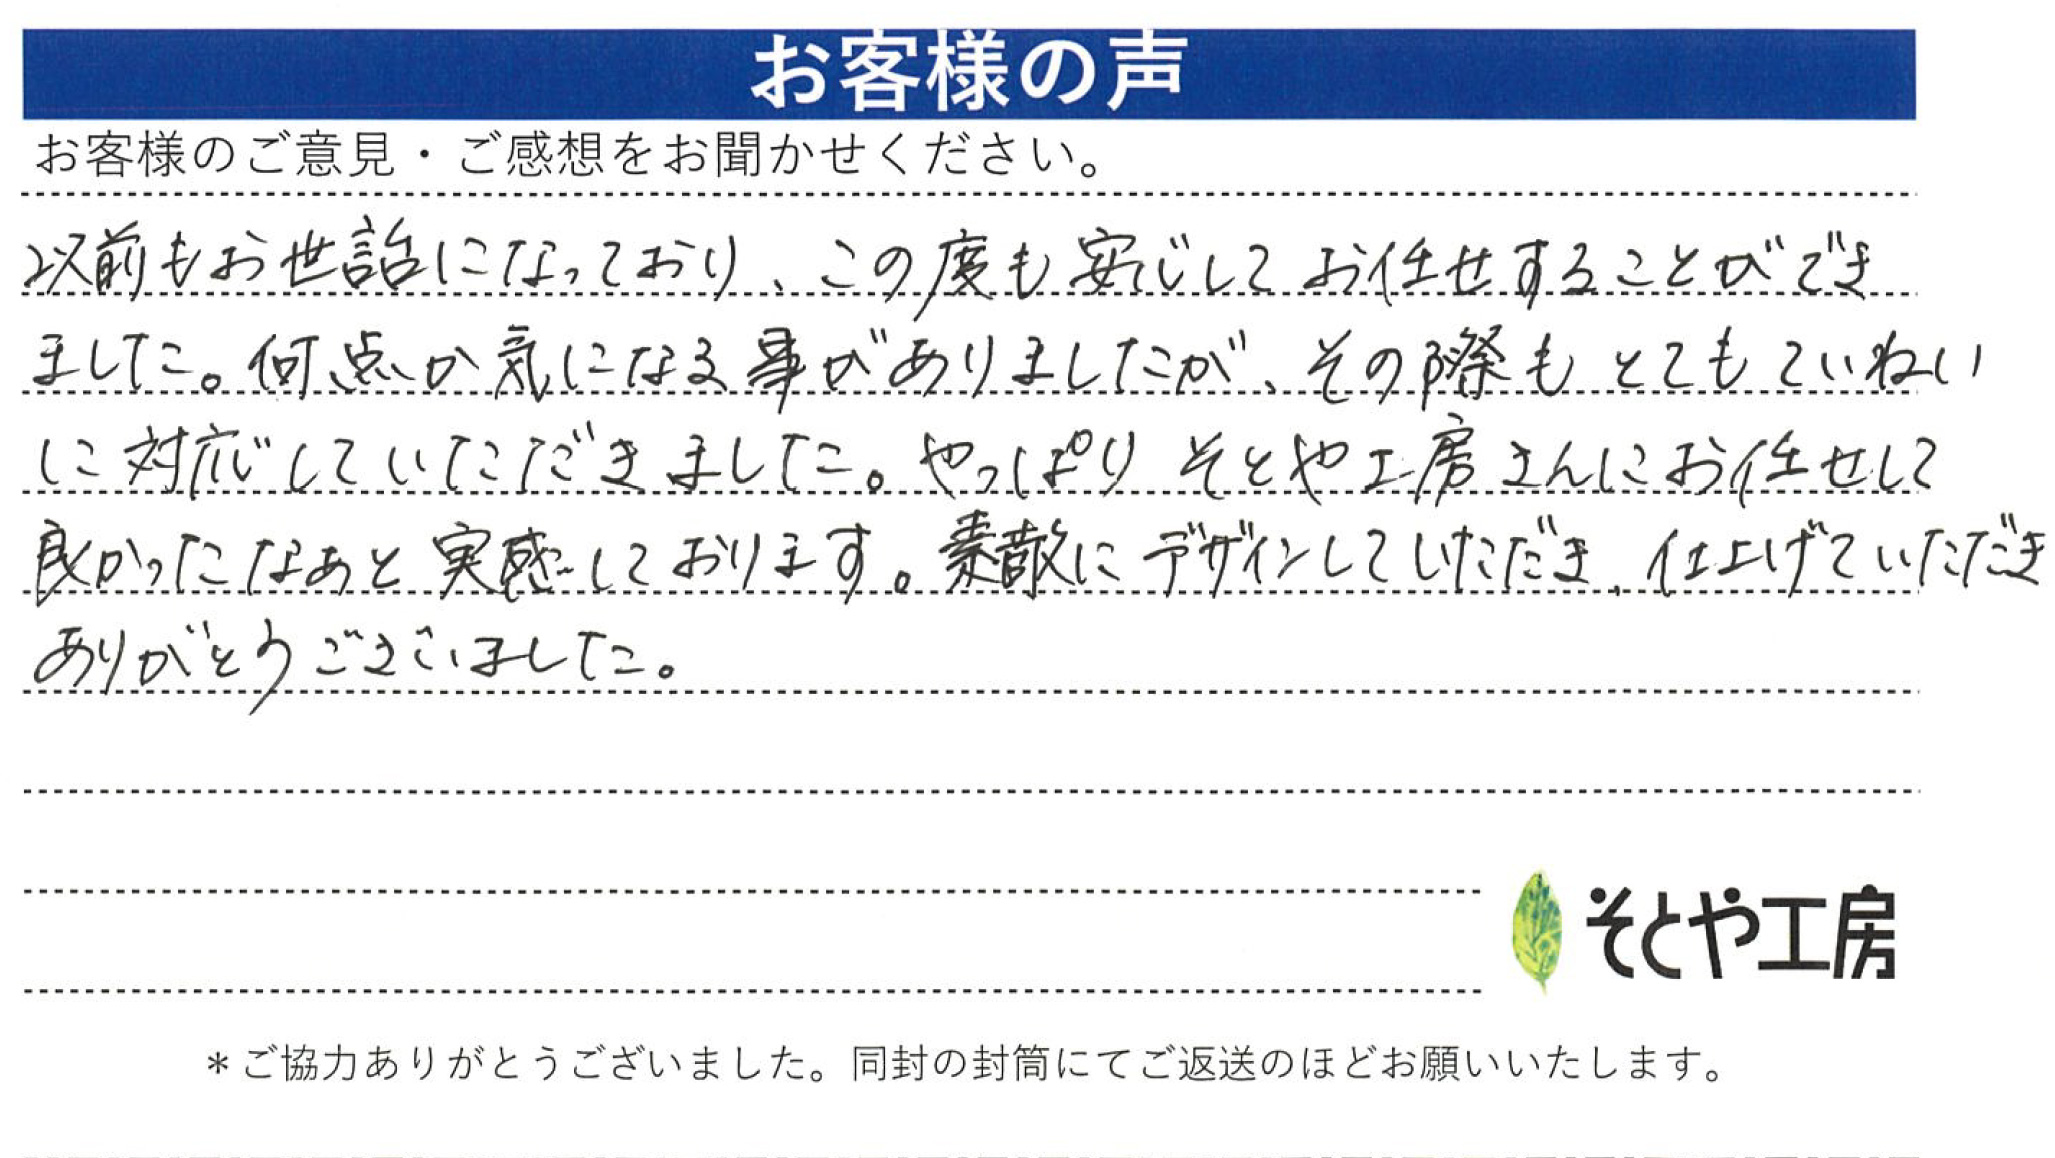 お客様の声
お客様のご意見・ご感想をお聞かせください。
以前もお世話になっており、この度も安心してお任せすることができ
ました。何点か気になる事がありましたが、その際もとてもていねい
に対応していただきました。やっぱりそとや工房さんにお任せして
良かったなあと実感しております。素敵にデザインしていただき、仕上げていただき
ありがとうございました。
そとや工房
＊ご協力ありがとうございました。同封の封筒にてご返送のほどお願いいたします。